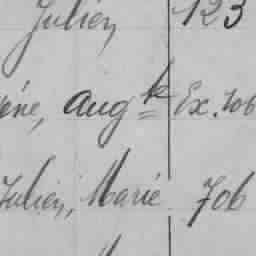 Julien, 123
ène, Augte Ex. 706
Julien, Marie 706